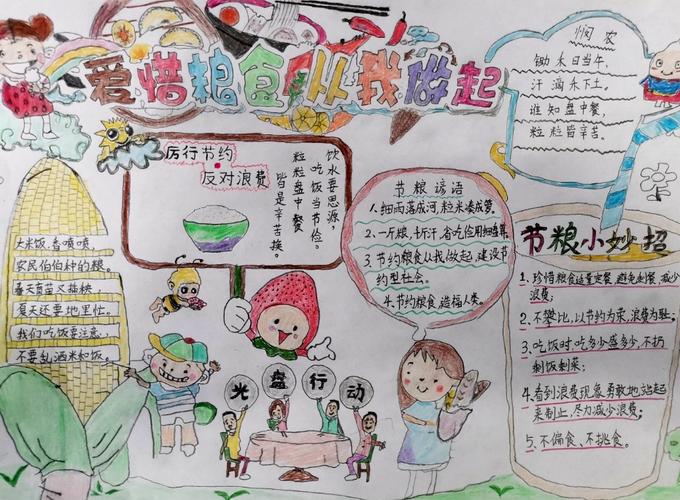 爱惜粮食从我做起
悯农
锄禾日当午,
汗滴禾下土。
谁知盘中餐,
粒粒皆辛苦。
厉行节约
反对浪费
饮水要思源,
吃饭当节俭。
粒粒盘中餐,
皆是辛苦换。
节粮谚语
1、细雨落成河,粒米凑成箩。
2、一斤粮,千斤汗,省吃俭用细盘算。
3、节约粮食从我做起,建设节
约型社会。
4、节约粮食,造福人类。
大米饭,香喷喷
农民伯伯种的粮。
春天育苗又插秧,
夏天还要地里忙。
我们吃饭要注意,
不要乱洒米和饭。
光盘行动
节粮小妙招
1、珍惜粮食适量定餐,避免剩餐,减少
浪费;
2、不攀比,以节约为荣,浪费为耻;
3、吃饭时,吃多少盛多少,不扔
剩饭剩菜;
4、看到浪费现象勇敢地站起
来制止,尽力减少浪费;
5、不偏食、不挑食。